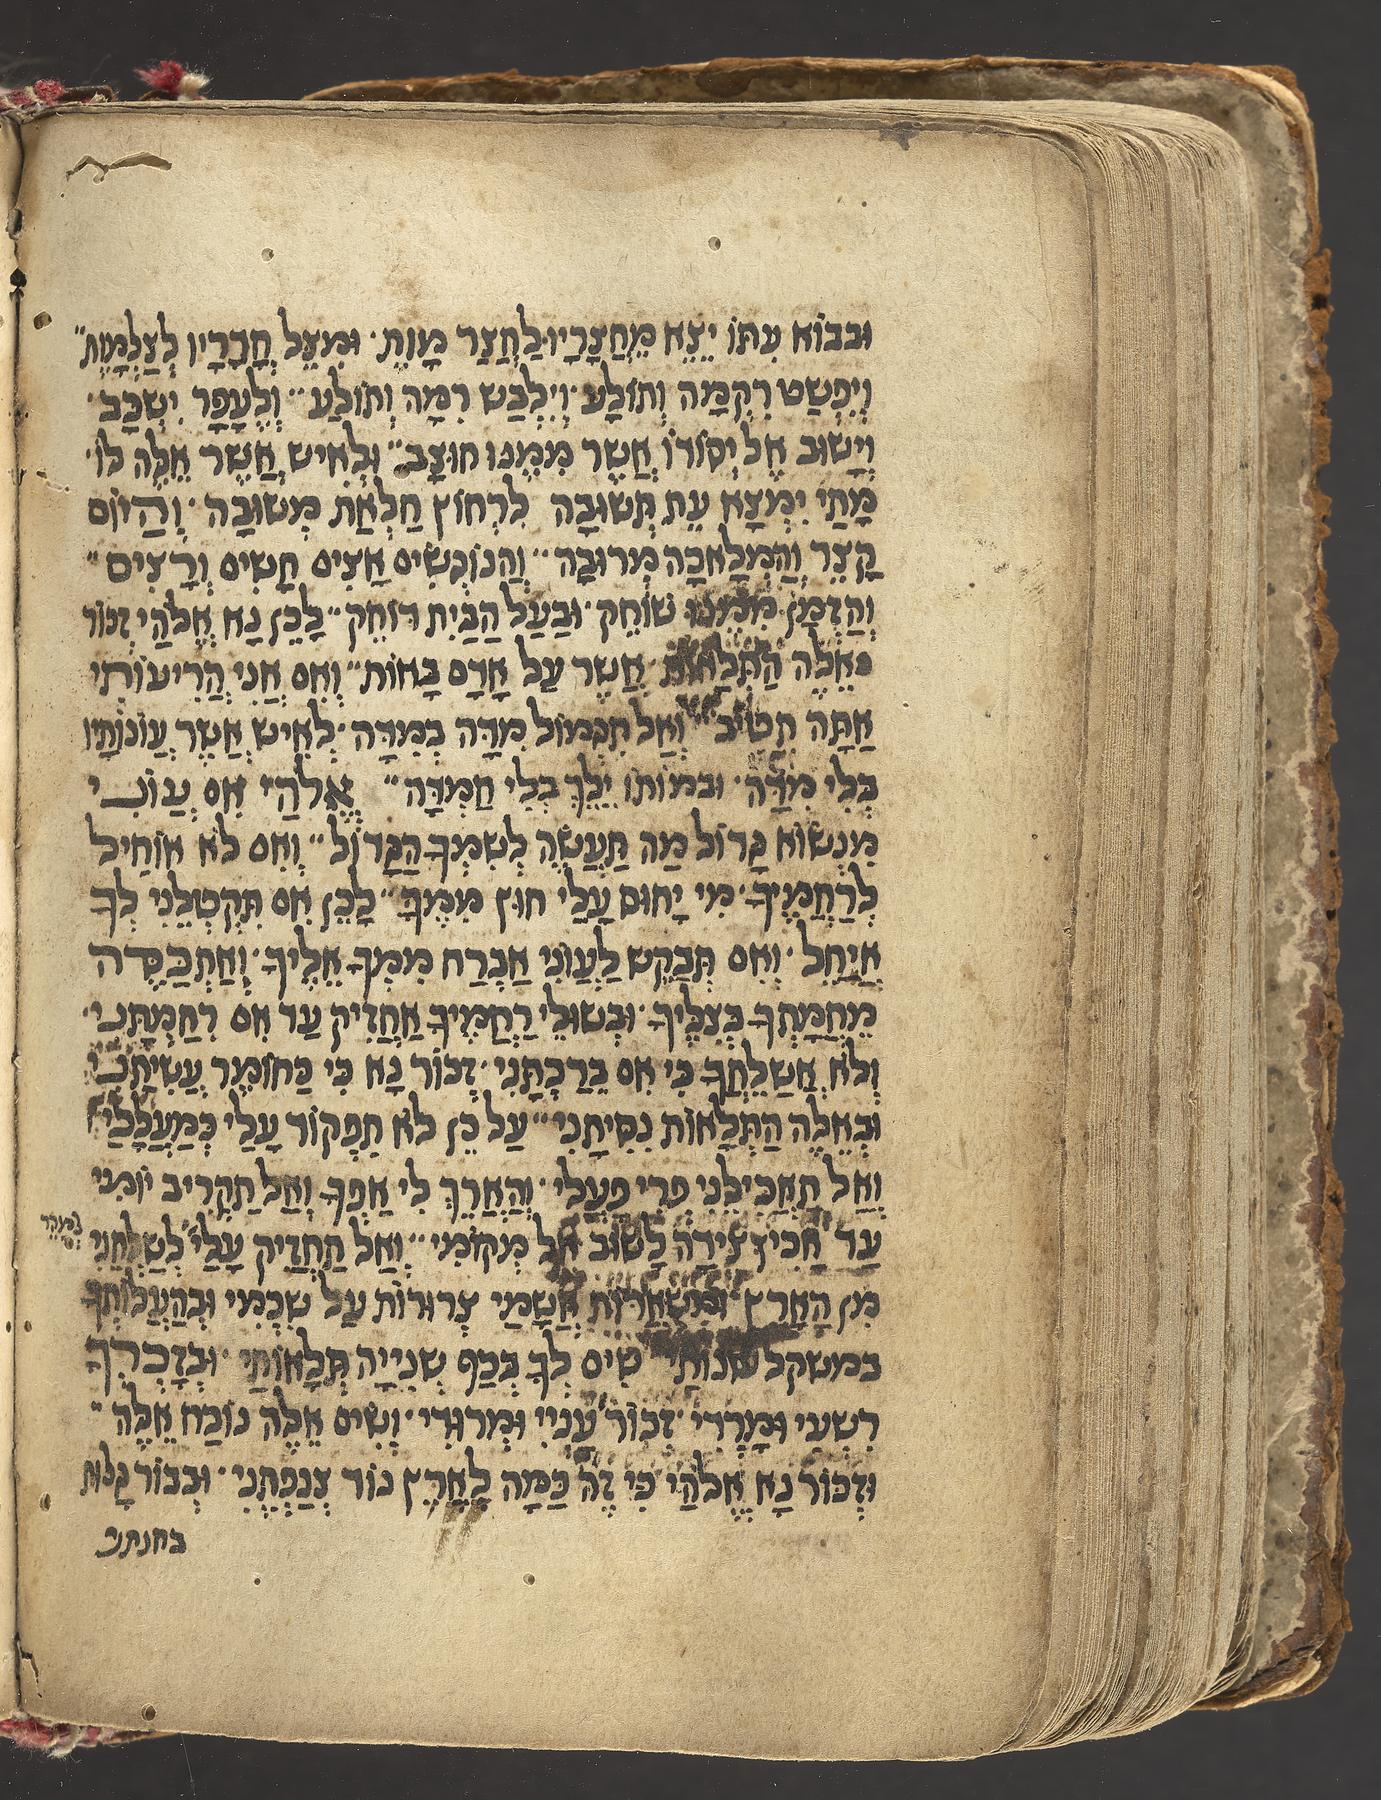 וּבְבוֹא עִתּוֹ יֵצֵא מֵחֲצֵרָיו לַחֲצַר מָוֶת · וּמִצֵּל חֲדָרָיו לְצַלְמָוֶת ״
וְיִפְשַׁט רִקְמָה וְתוֹלָע · וְיִלְבַּשׁ רִמָּה וְתוֹלָע ״ וְלֶעָפָר יִשְׁכַּב ·
וְיָשׁוּב אֶל יְסוֹדוֹ אֲשֶׁר מִמֶּנּוּ חוּצָּב ״ וּלְאִישׁ אֲשֶׁר אֵלֶּה לוֹ ·
מָתַי יִמְצָא עֵת תְּשׁוּבָה לִרְחוֹץ חֶלְאַת מְשׁוּבָה · וְהַיּוֹם
קָצֵר וְהַמְּלָאכָה מְרוּבָּה ״ וְהַנּוֹגְשִׂים אָצִים חָשִׁים וְרָצִים ״
וְהַזְּמָן מִמֶּנּוּ שׂוֹחֵק · וּבַעַל הַבַּיִת דּוֹחֵק ״ לָכֵן נָא אֱלֹהַי זְכוֹר
אֵלֶּה הַתְּלָאוֹת · אֲשֶׁר עַל אָדָם בָּאוֹת ״ וְאִם אֲנִי הֲרִיעוֹתִי
אַתָּה תֵּטִיב וְאַל תִּגְמוֹל מִדָּה בְּמִדָּה · לְאִישׁ אֲשֶׁר עֲוֹנוֹתָיו
בְּלִי מִדָּה · וּבְמוֹתוֹ יֵלֵךְ בְּלִי חֶמְדָּה ״ אֱלֹהַי אִם עֲוֹנִי
מִנְּשׂוֹא גָּדוֹל מַה תַּעֲשֶׂה לְשִׁמְךָ הַגָּדוֹל ״ וְאִם לֹא אוֹחִיל
לְרַחֲמֶיךָ · מִי יָחוּס עָלַי חוּץ מִמֶּךָ ״ לָכֵן אִם תִּקְטְלֵנִי לְךָ
אֲיַחֵל · וְאִם תְּבַקֵּשׁ לַעֲוֹנִי אֶבְרַח מִמְּךָ אֵלֶיךָ · וְאֶתְכַּסֶּה
מֵחֲמָתְךָ בְּצִלֶּךָ · וּבְשׁוּלֵי רַחֲמֶיךָ אַחֲזִיק עַד אִם רִחַמְתָּנִי ·
וְלֹא אֲשַׁלֵּחֲךָ כִּי אִם בֵּרַכְתָּנִי · זְכוֹר נָא כִּי כַּחוֹמֶר עֲשִׂיתָנִי
וּבְאֵלֶּה הַתְּלָאוֹת נִסִּיתָנִי ״ עַל כֵּן לֹא תִפְקוֹד עָלַי כְּמַעֲלָלַי
וְאַל תַּאֲכִילֵנִי פְּרִי פְעָלַי · וְהַאֲרֵךְ לִי אַפְּךָ וְאַל תַּקְרִיב יוֹמִי
עַד אָכִין צֵידָה לָשׁוּב אֶל מְקוֹמִי ״ וְאַל תַּחֲזִיק עָלַי לְשַׁלְּחֵנִי
מִן הָאָרֶץ וּמִשְׁאֲרוֹת אֲשָׁמַי צְרוּרוֹת עַל שִׁכְמִי וּבְהַעֲלוֹתְךָ
בְּמִשְׁקָל עֲוֹנוֹתַי שִׂים לְךָ בְּכַף שְׁנִיָּיה תְּלָאוֹתַי · וּבְזָכְרְךָ
רִשְׁעִי וּמְרָדִי · זְכוֹר עָנְיִי וּמְרוּדִי · וְשִׂים אֵלֶּה נוֹכַח אֵלֶּה ״
וּזְכוֹר נָא אֱלֹהַי כִּי זֶה כַּמָּה לְאֶרֶץ נוֹד צְנַפְתָּנִי · וּבְכוּר גָּלוּת
בחנתני